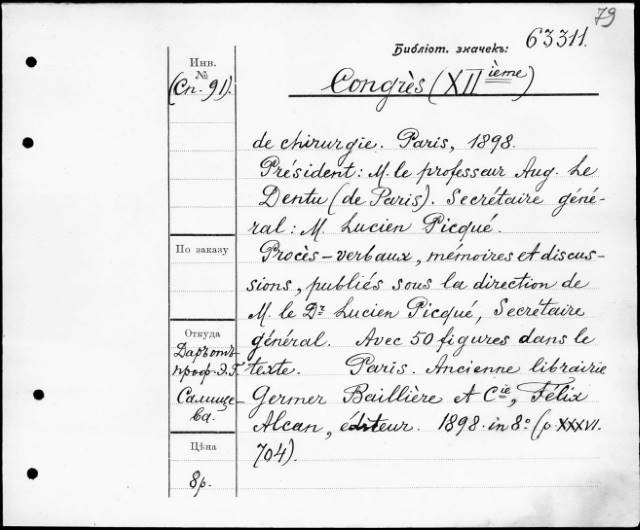 79
Библіот. значекъ: 63311.
Инв.
№
(Сп. 91).
Congrès (XII ième)
de chirurgie. Paris, 1898.
Président: M. le professeur Aug. Le
Dentu (de Paris). Secrétaire géné-
ral: M. Lucien Picqué.
По заказу
Procès-verbaux, mémoires et discus-
sions, publiés sous la direction de
M. le Dr Lucien Picqué, Secrétaire
général. Avec 50 figures dans le
texte. Paris. Ancienne librairie
Germer Baillière et Cie, Félix
Alcan, éditeur. 1898. in 8º. (p. XXXVI.
704).
Откуда
Даръ отъ
проф. Э. Г.
Салище-
ва.
Цѣна
8р.